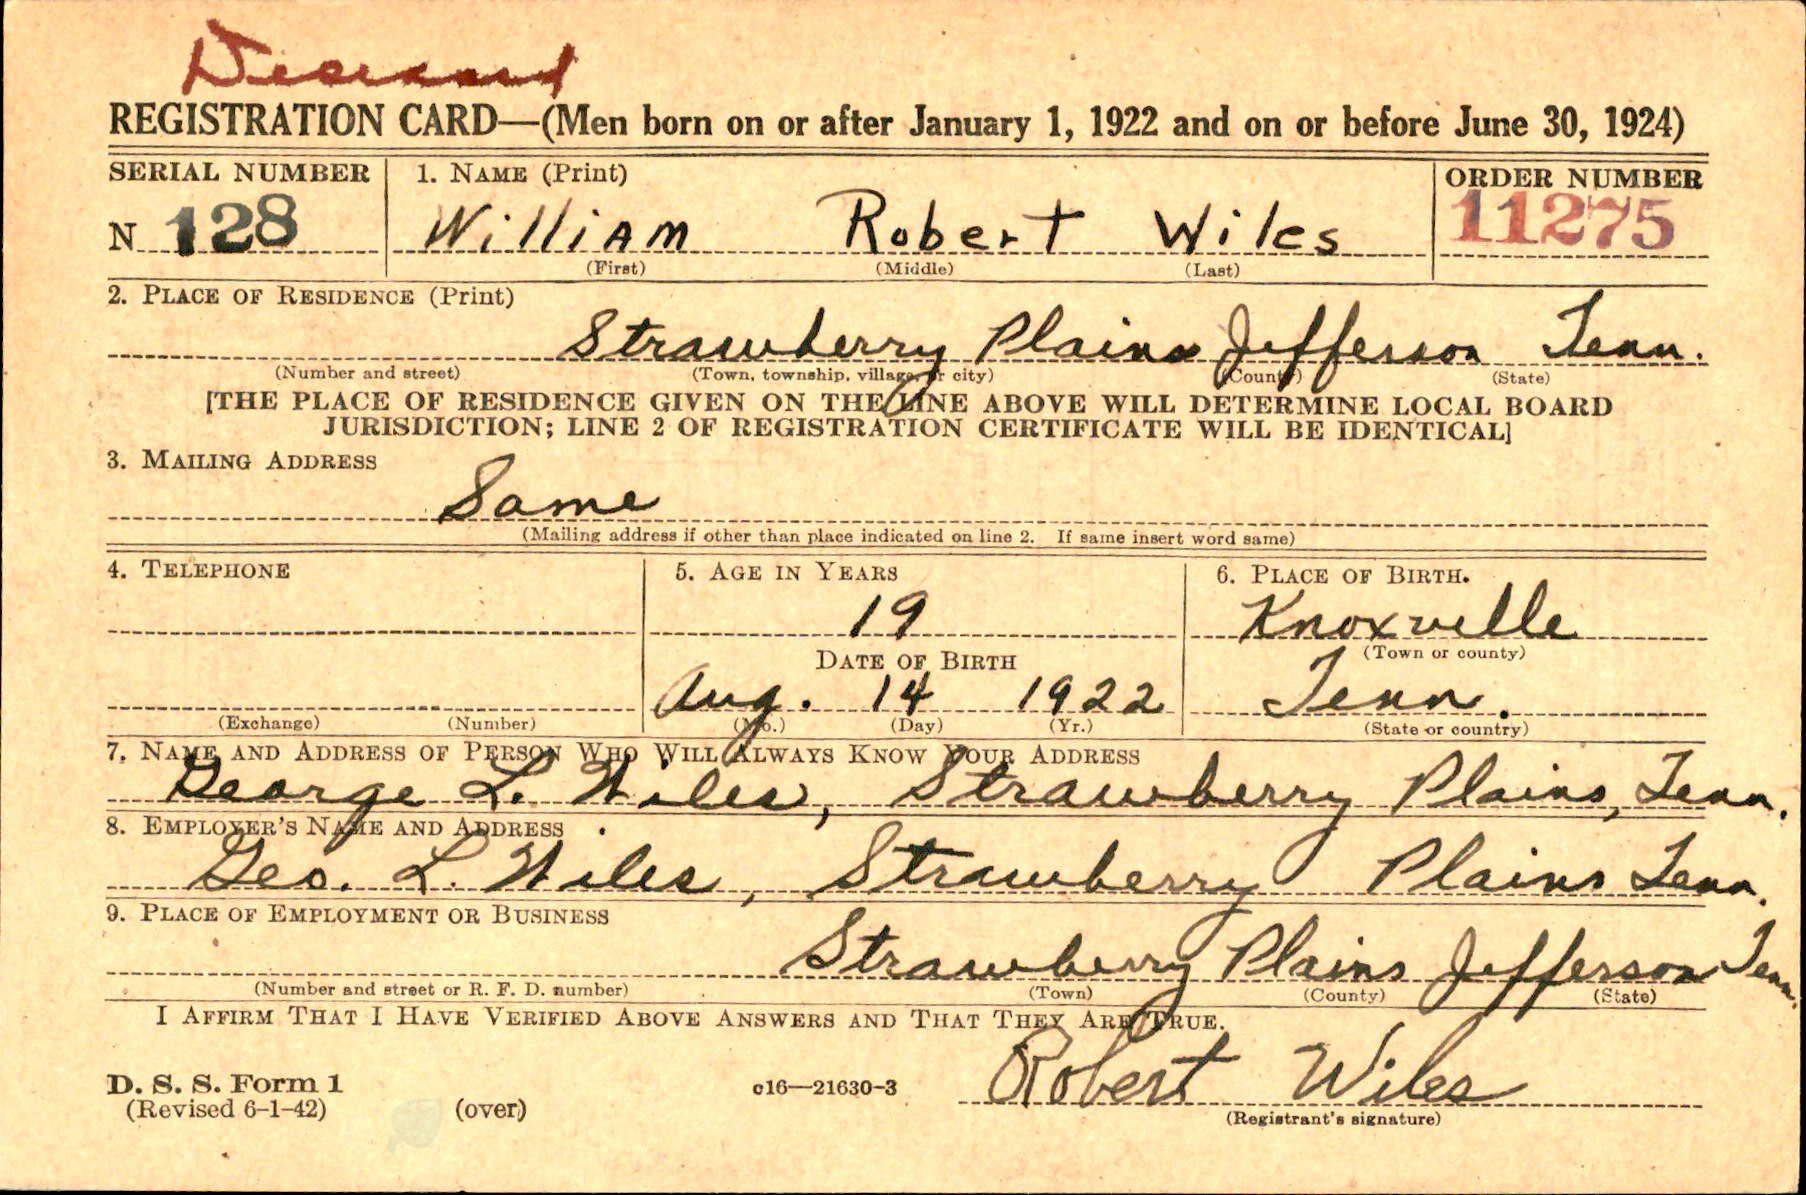 Deceased
REGISTRATION CARD—(Men born on or after January 1, 1922 and on or before June 30, 1924)
SERIAL NUMBER
1. NAME (Print)
ORDER NUMBER
N 128
William Robert Wiles
11275
(First) (Middle) (Last)
2. PLACE OF RESIDENCE (Print)
Strawberry Plains Jefferson Tenn.
(Number and street) (Town, township, village, or city) (County) (State)
[THE PLACE OF RESIDENCE GIVEN ON THE LINE ABOVE WILL DETERMINE LOCAL BOARD
JURISDICTION; LINE 2 OF REGISTRATION CERTIFICATE WILL BE IDENTICAL]
3. MAILING ADDRESS
Same
(Mailing address if other than place indicated on line 2. If same insert word same)
4. TELEPHONE
5. AGE IN YEARS
6. PLACE OF BIRTH.
19
Knoxville
DATE OF BIRTH
(Town or county)
Aug. 14 1922
Tenn.
(Exchange) (Number)
(Mo.) (Day) (Yr.)
(State or country)
7. NAME AND ADDRESS OF PERSON WHO WILL ALWAYS KNOW YOUR ADDRESS
George L. Wiles, Strawberry Plains, Tenn.
8. EMPLOYER'S NAME AND ADDRESS
Geo. L. Wiles, Strawberry Plains Tenn.
9. PLACE OF EMPLOYMENT OR BUSINESS
Strawberry Plains Jefferson Tenn.
(Number and street or R. F. D. number) (Town) (County) (State)
I AFFIRM THAT I HAVE VERIFIED ABOVE ANSWERS AND THAT THEY ARE TRUE.
D. S. S. Form 1
(Revised 6-1-42) (over)
c16—21630-3
Robert Wiles
(Registrant's signature)